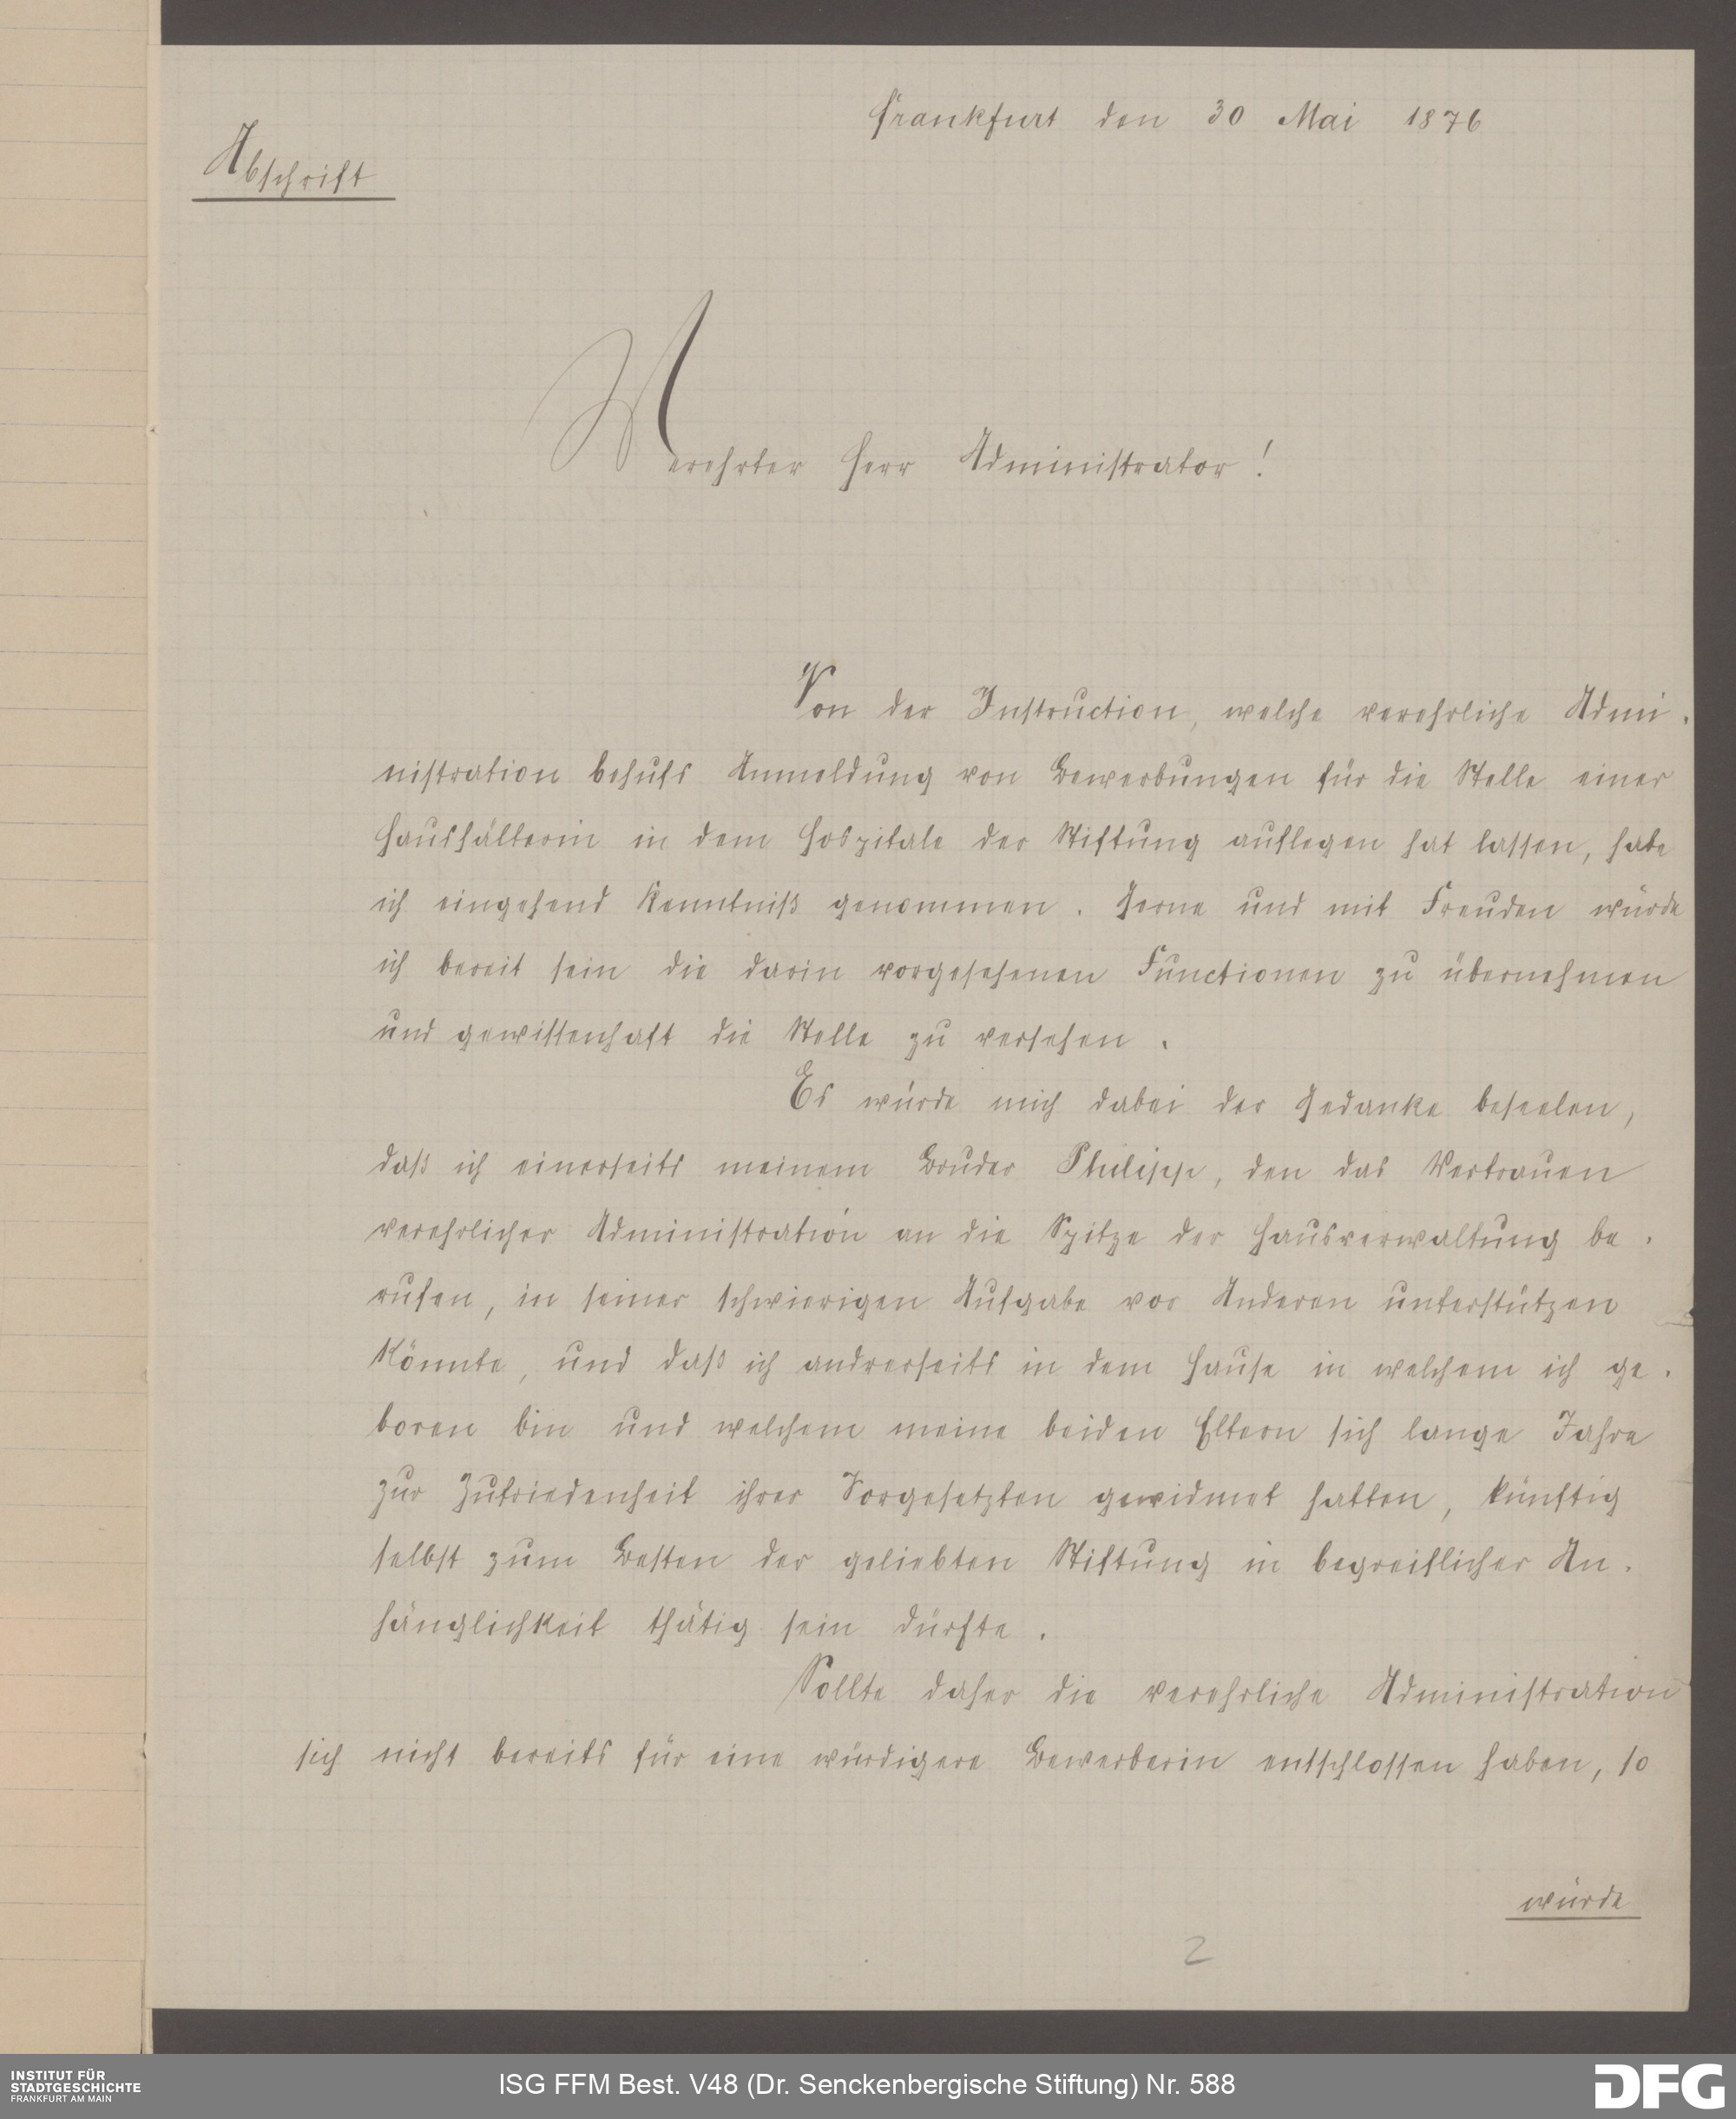 Frankfurt den 30 Mai 1876
Abschrift
Verehrter Herr Administrator!
Von der Instruction, welche verehrliche Admi-
nistration behufs Anmeldung von Bewerbungen für die Stelle einer
Haushälterin in dem Hospitale der Stiftung auflegen hat lassen, habe
ich eingehend Kenntniß genommen. Gerne und mit Freuden würde
ich bereit sein die darin vorgesehenen Functionen zu übernehmen
und gewissenhaft die Stelle zu versehen.
Es würde mich dabei der Gedanke beseelen,
daß ich einerseits meinem Bruder Philipp, den das Vertrauen
verehrlicher Administration an die Spitze der Hausverwaltung be-
rufen, in seiner schwierigen Aufgabe vor Anderen unterstützen
könnte, und daß ich andrerseits in dem Hause in welchem ich ge-
boren bin und welchem meine beiden Eltern sich lange Jahre
zur Zufriedenheit ihrer Vorgesetzten gewidmet hatten, künftig
selbst zum Besten der geliebten Stiftung in begreiflicher An-
hänglichkeit thätig sein dürfte.
Sollte daher die verehrliche Administration
sich nicht bereits für eine würdigere Bewerberin entschlossen haben, so
würde
2
INSTITUT FÜR
STADTGESCHICHTE
FRANKFURT AM MAIN
ISG FFM Best. V48 (Dr. Senckenbergische Stiftung) Nr. 588
DFG